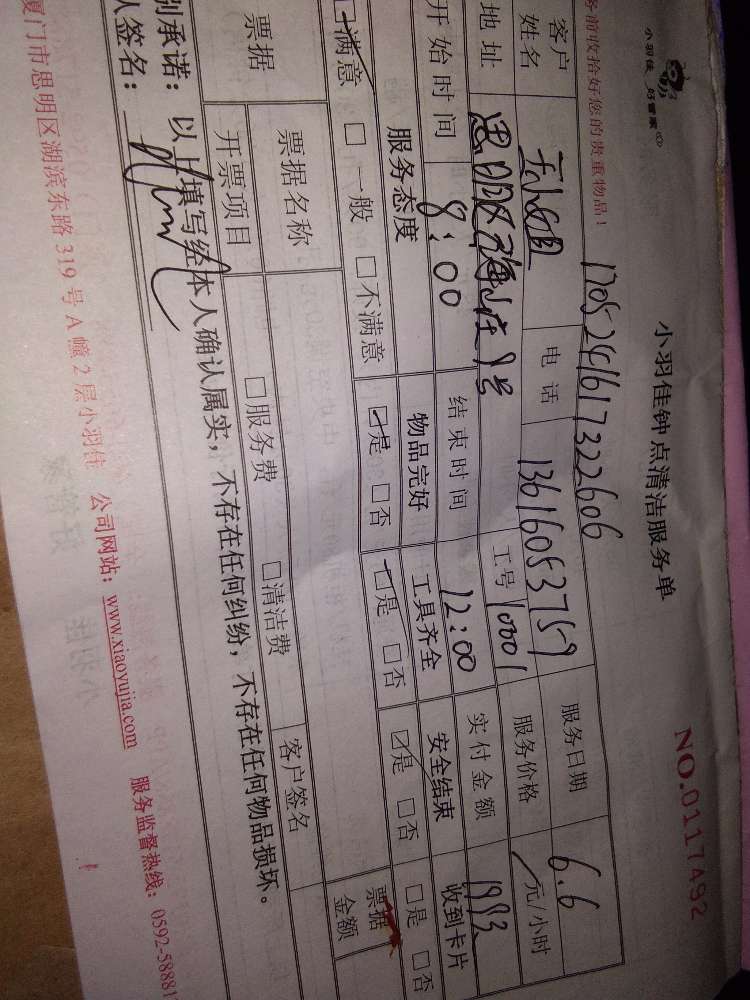 小羽佳 好管家
小羽佳钟点清洁服务单
NO.0117492
务前收拾好您的贵重物品！
170529161732260б
客户姓名
电话 13616053759
服务日期 6.6
地址 思明区
工号 10001
服务价格 元/小时
开始时间 8:00
结束时间 12:00
实付金额
服务态度 物品完好 工具齐全 安全结束 收到卡片
☑满意 □一般 □不满意 ☑是 □否 ☑是 □否 ☑是 □否 □是 □否
票据 票据名称 客户签名 票据金额
开票项目 □服务费 □清洁费
别承诺：以上填写经本人确认属实，不存在任何纠纷，不存在任何物品损坏。
人签名：
厦门市思明区湖滨东路319号A幢2层小羽佳 公司网站：www.xiaoyujia.com 服务监督热线：0592-58881